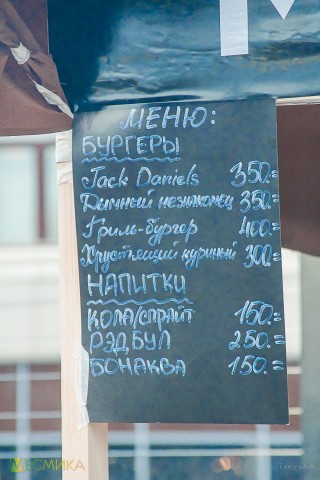 М
МЕНЮ:
БУРГЕРЫ
Jack Daniels 350.=
Дымный незнакомец 350.=
Гриль-бургер 400.=
Хрустящий куриный 300.=
НАПИТКИ
КОЛА/СПРАЙТ 150.=
РЭД БУЛ 250.=
БОНАКВА 150.=
МЕСМИКА